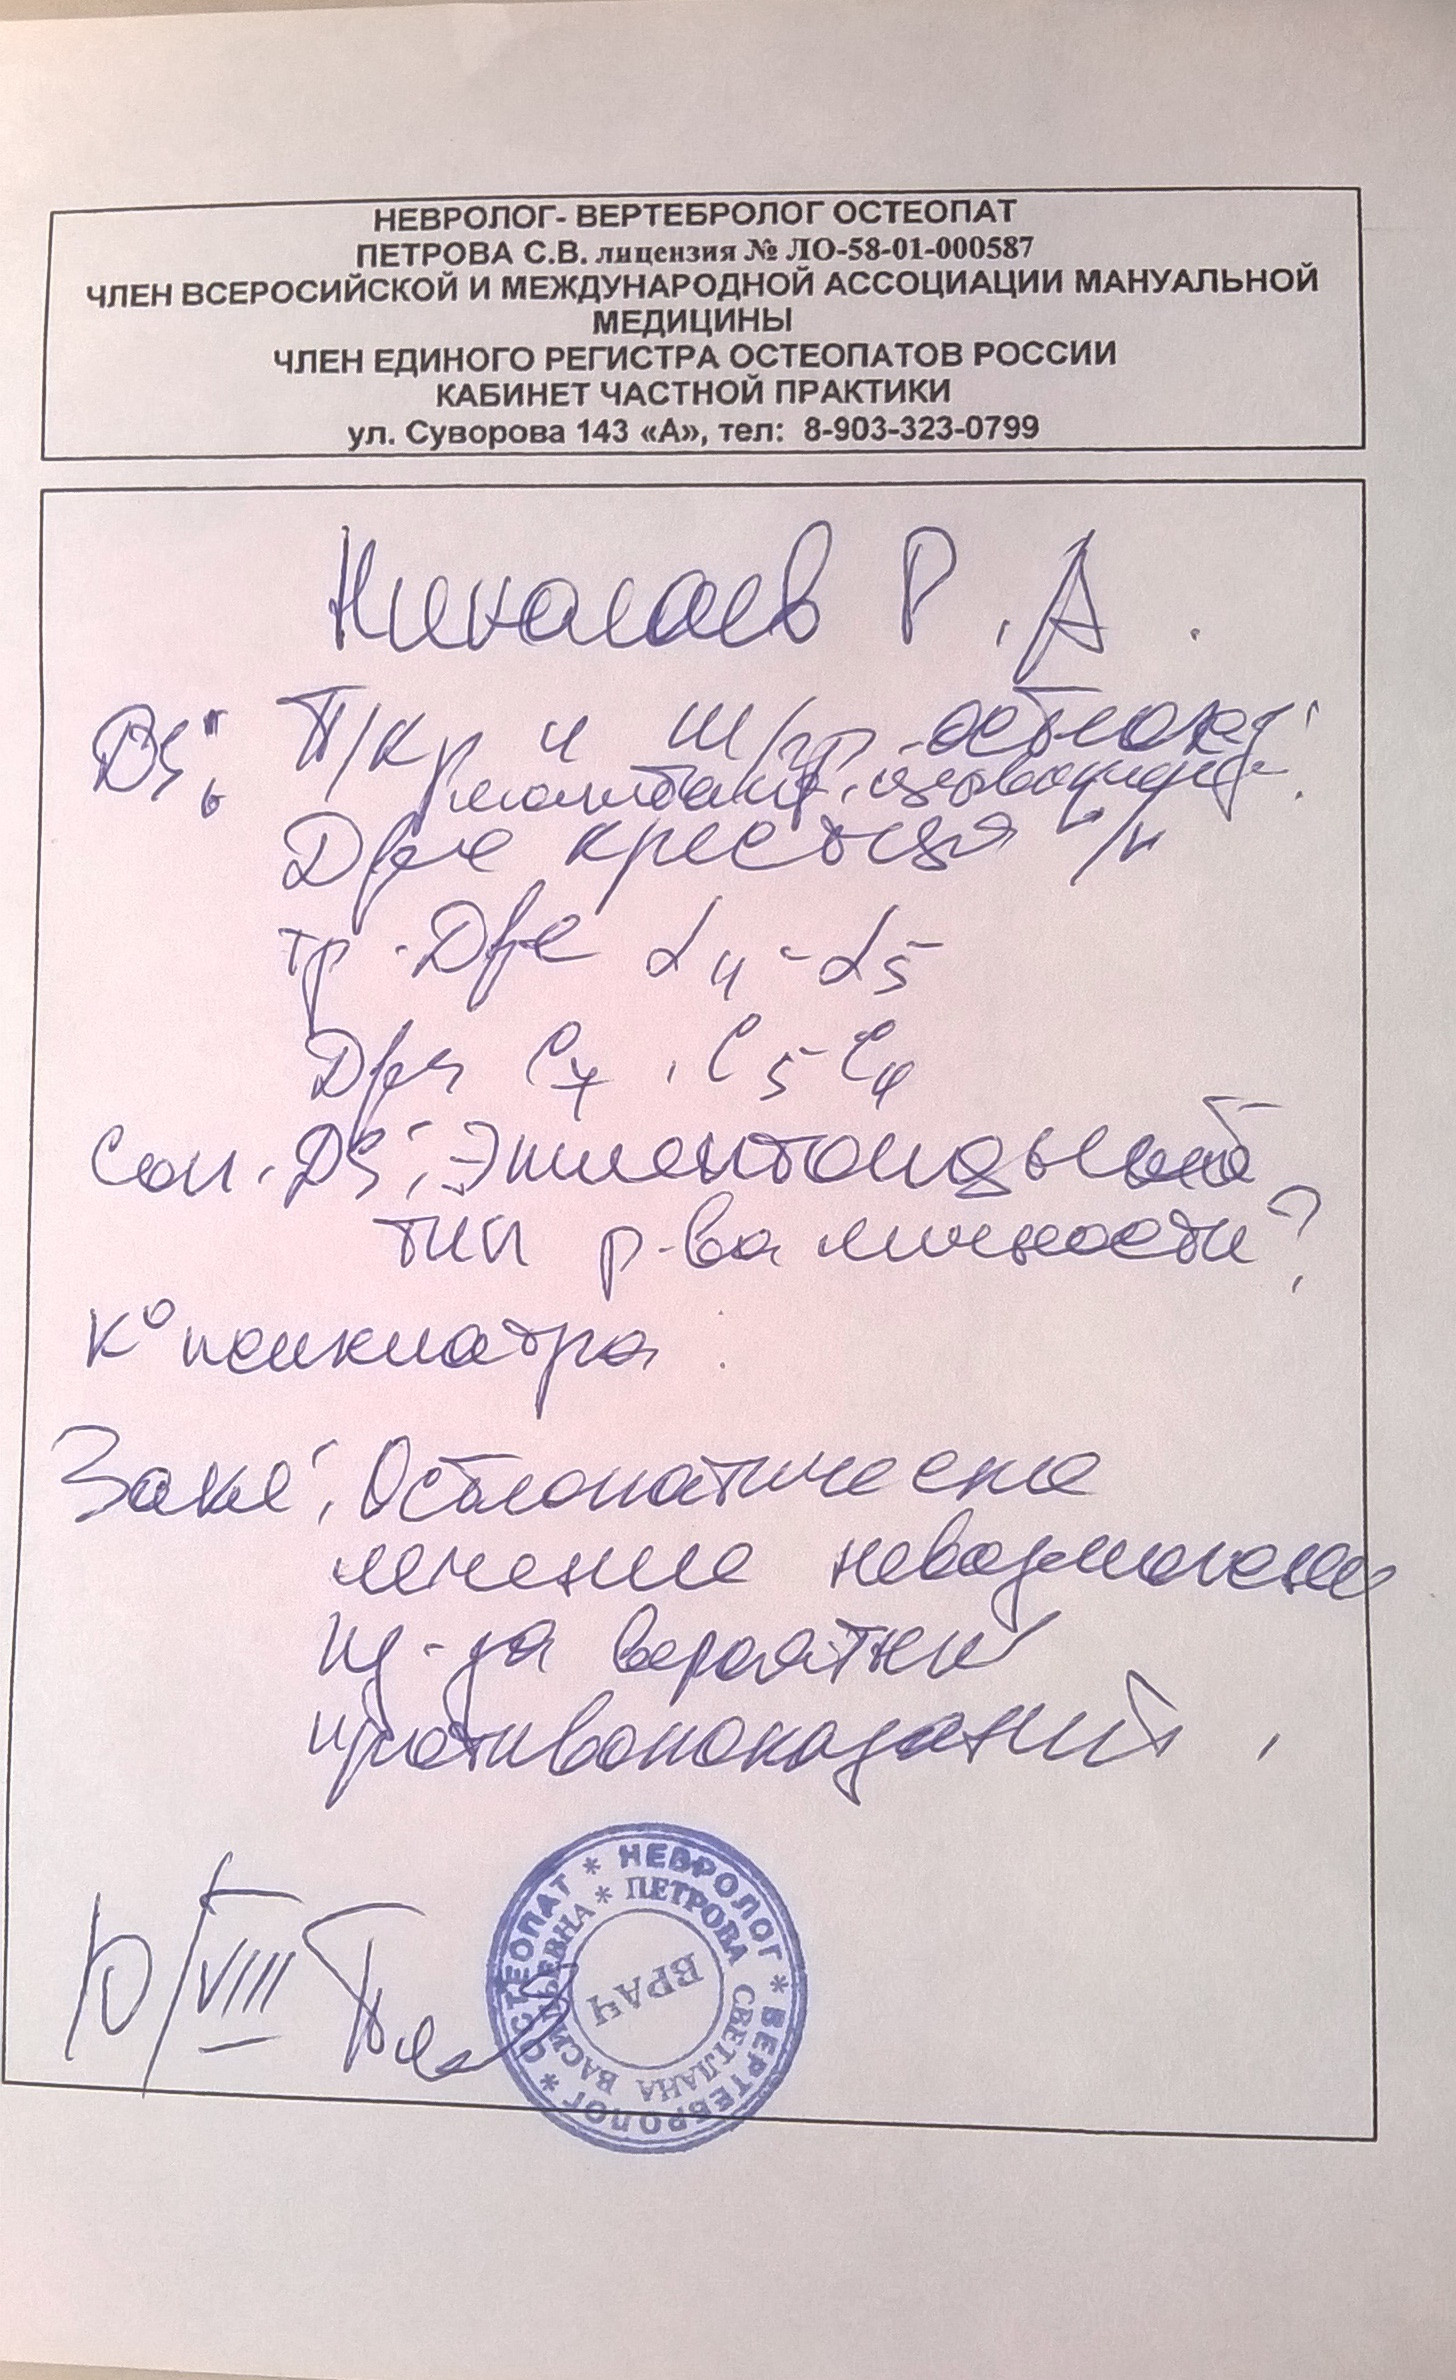 НЕВРОЛОГ- ВЕРТЕБРОЛОГ ОСТЕОПАТ
ПЕТРОВА С.В. лицензия № ЛО-58-01-000587
ЧЛЕН ВСЕРОСИЙСКОЙ И МЕЖДУНАРОДНОЙ АССОЦИАЦИИ МАНУАЛЬНОЙ
МЕДИЦИНЫ
ЧЛЕН ЕДИНОГО РЕГИСТРА ОСТЕОПАТОВ РОССИИ
КАБИНЕТ ЧАСТНОЙ ПРАКТИКИ
ул. Суворова 143 «А», тел: 8-903-323-0799
Николаев Р. А.
DS: П/кр и ш/гр остеохз
Дфе крестца п/к
тр. Дфе L4-L5
Дфя C7, C5 C4
Соп. DS: Эпилептоидный
тип р-ва личности?
Ко психиатра
Закл: Остеопатическое
лечение невозможно
из-за вероятных
противопоказаний.
10/VIII
* НЕВРОЛОГ * ВЕРТЕБРОЛОГ * ОСТЕОПАТ
* ПЕТРОВА СВЕТЛАНА ВАСИЛЬЕВНА
ВРАЧ